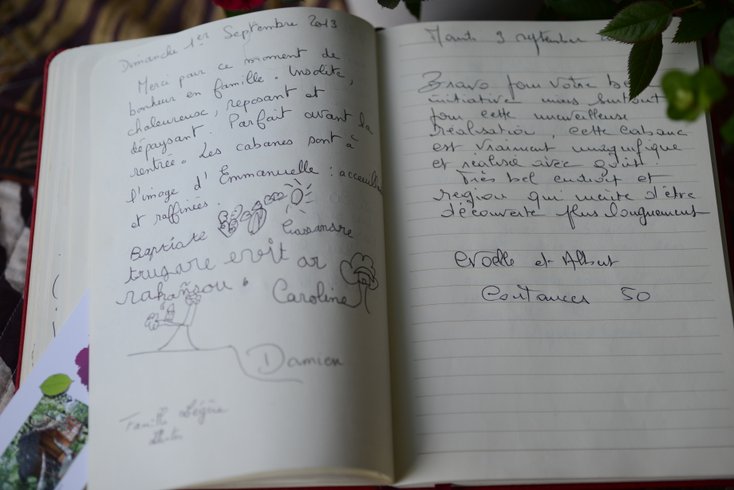 Dimanche 1er Septembre 2013
Merci pour ce moment de
bonheur en famille. Insolite,
chaleureux, reposant et
dépaysant. Parfait avant la
rentrée. Les cabanes sont à
l'image d'Emmanuelle : accueillan
et raffinées.
Baptiste Cassandre
trugare evit ar
Caroline
Damien
Famille
Mardi 3 septembre
Bravo pour votre bel
initiative mais surtout
pour cette merveilleuse
réalisation, cette cabane
est vraiment magnifique
et réalisée avec goût.
Très bel endroit et
région qui mérite d'être
découverte plus longuement
et Albert
Coutances 50